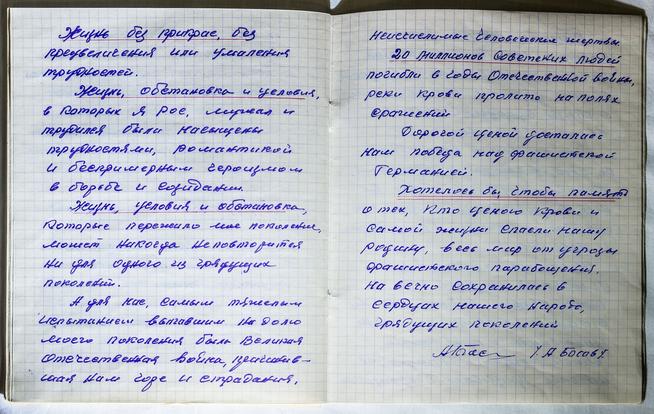 Жизнь без прикрас, без
преувеличения или умаления
трудностей.
Жизнь, обстановка и условия,
в которых я рос, мужал и
трудился были насыщены
трудностями, романтикой
и беспримерным героизмом
в борьбе и созидании.
Жизнь, условия и обстановка,
которые пережило мое поколение,
может никогда неповторится
ни для одного из грядущих
поколений.
А для нас, самым тяжелым
испытанием выпавшим на долю
моего поколения была Великая
Отечественная война, причинив-
шая нам горе и страдания,
неисчислимые человеческие жертвы.
20 миллионов Советских людей
погибли в годы Отечественной войны,
реки крови пролито на полях
сражений
Дорогой ценой досталась
нам победа над фашистской
Германией.
Хотелось бы, чтобы память
о тех, кто ценою крови и
самой жизни спасли нашу
родину, весь мир от угрозы
фашистского порабощения,
на вечно сохранилась в
сердцах нашего народа,
грядущих поколений